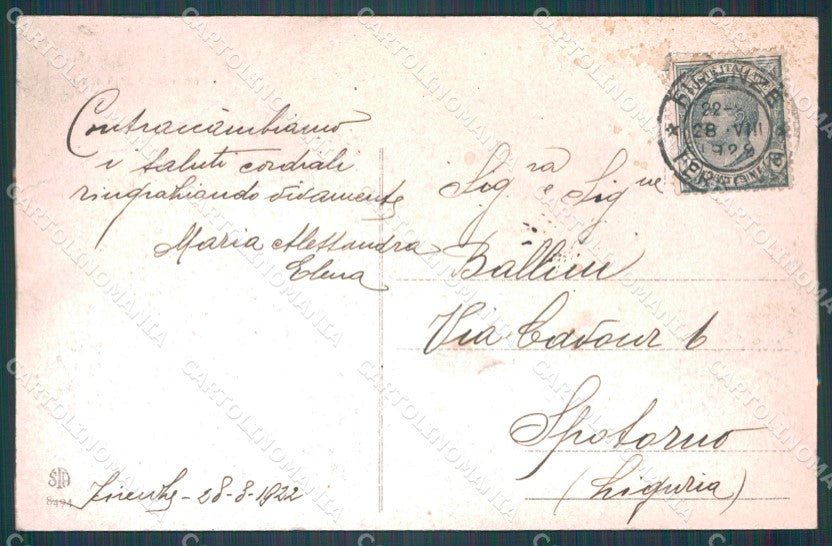 Contraccambiamo
i saluti cordiali
ringraziando vivamente
Maria Alessandra
Elena
Firenze - 28-8-1922
Sig.ra e Sig.ne
Ballini
Via Cavour 6
Spotorno
(Liguria)
FIRENZE
28 VIII
8494
CARTOLINOMANIA